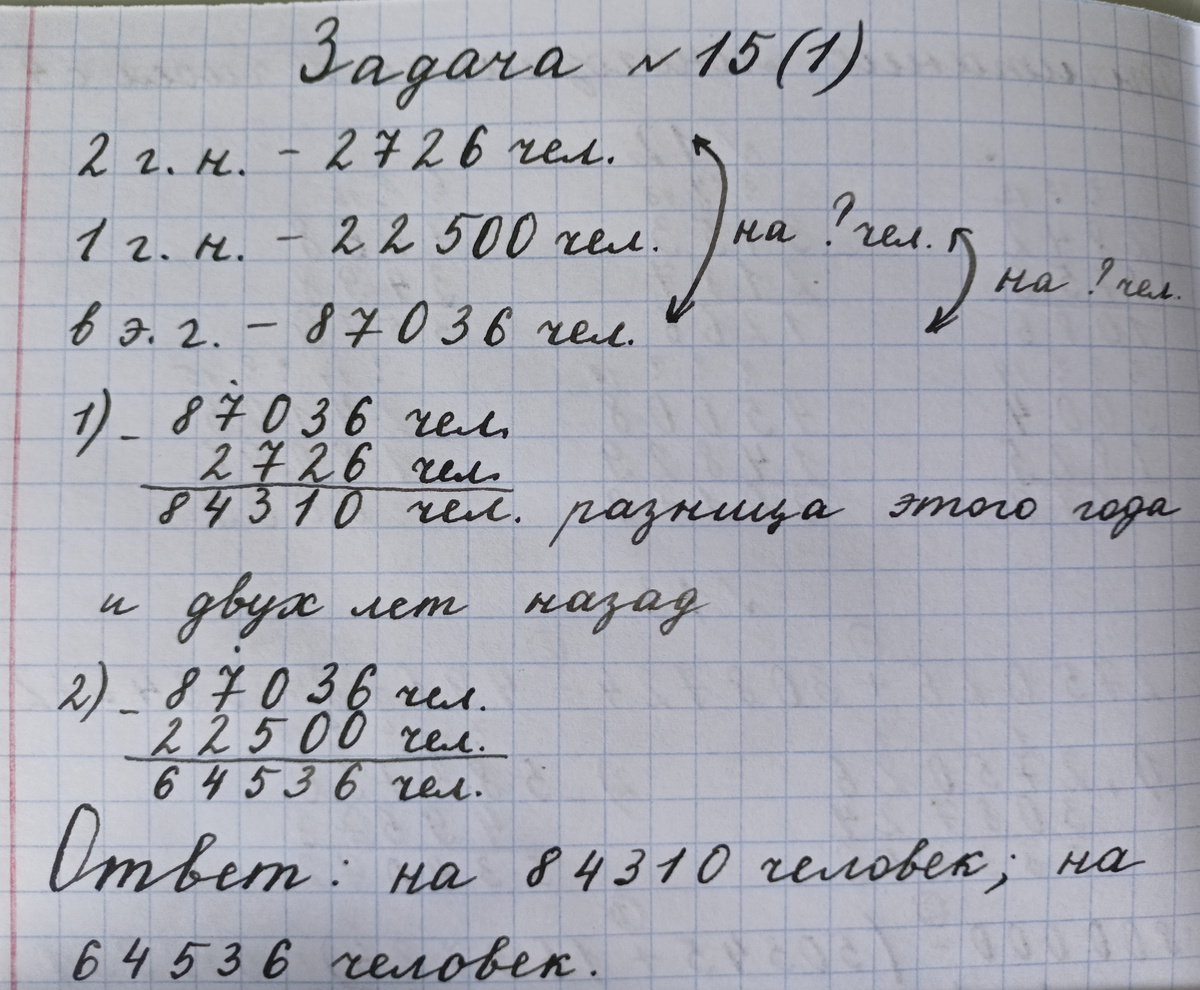 Задача №15(1)
2 г. н. - 2726 чел.
1 г. н. - 22500 чел. на ? чел.
на ? чел.
в э. г. - 87036 чел.
1) - 87036 чел.
2726 чел.
84310 чел. разница этого года
и двух лет назад
2) - 87036 чел.
22500 чел.
64536 чел.
Ответ: на 84310 человек; на
64536 человек.